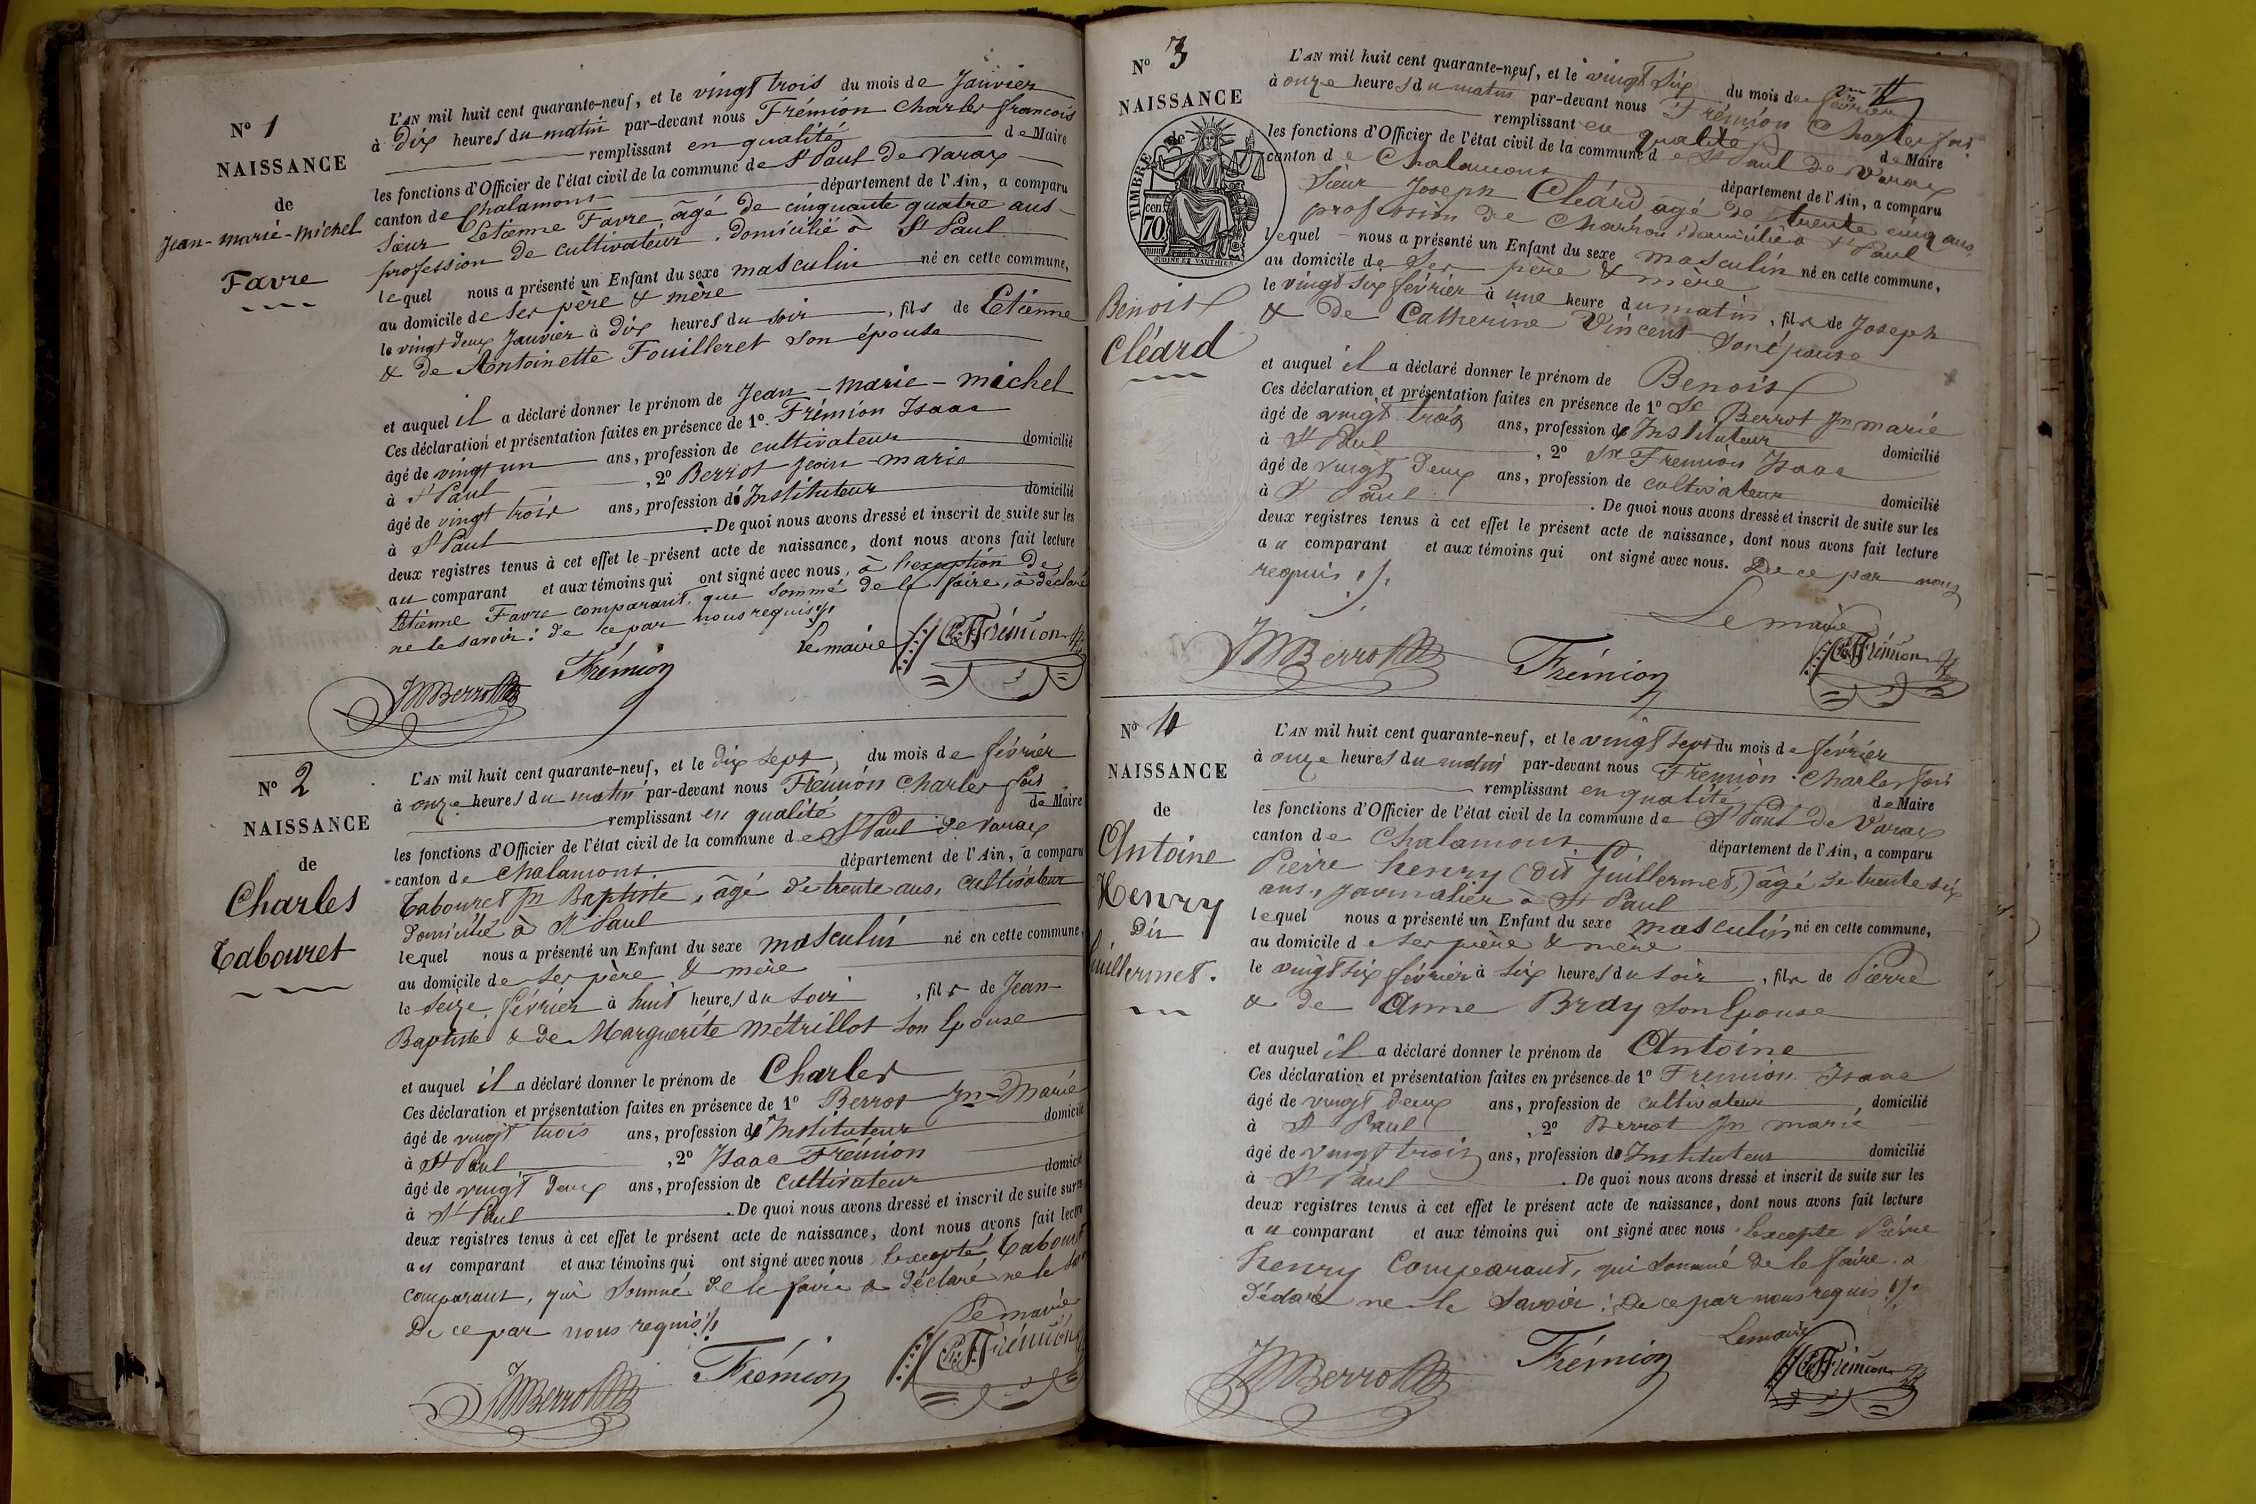 N° 1
NAISSANCE
de
Jean-marie-michel
Favre
L'AN mil huit cent quarante-neuf, et le vingt trois du mois de Janvier
à dix heures du matin par-devant nous Frémion Charles françois
remplissant en qualité de Maire
les fonctions d'Officier de l'état civil de la commune de St Paul de Varax
canton de Chalamont département de l'Ain, a comparu
Sieur Etienne Favre âgé de cinquante quatre ans
profession de cultivateur, domicilié à St Paul
lequel nous a présenté un Enfant du sexe masculin né en cette commune,
au domicile de ses père & mère
le vingt deux Janvier à dix heures du soir, fils de Etienne
& de Antoinette Fouilleret son épouse
et auquel il a déclaré donner le prénom de Jean-marie-michel
Ces déclaration et présentation faites en présence de 1° Frémion Isaac
âgé de vingt un ans, profession de cultivateur domicilié
à St Paul, 2° Berrot Jean marie
âgé de vingt trois ans, profession d'Instituteur domicilié
à St Paul. De quoi nous avons dressé et inscrit de suite sur les
deux registres tenus à cet effet le présent acte de naissance, dont nous avons fait lecture
au comparant et aux témoins qui ont signé avec nous, à l'exception de
Etienne Favre comparant, qui sommé de le faire, a déclaré
ne le savoir: de ce par nous requis
Le maire
JM Berrot Frémion C F Frémion
N° 2
NAISSANCE
de
Charles
Tabouret
L'AN mil huit cent quarante-neuf, et le dix sept, du mois de février
à onze heures du matin par-devant nous Frémion Charles fois
remplissant en qualité de Maire
les fonctions d'Officier de l'état civil de la commune de St Paul de Varax
canton de Chalamont département de l'Ain, a comparu
Tabouret Jn Baptiste, âgé de trente ans, cultivateur
domicilié à St Paul
lequel nous a présenté un Enfant du sexe masculin né en cette commune,
au domicile de ses père & mère
le seize février à huit heures du soir, fils de Jean-
Baptiste & de Marguerite Métrillot son épouse
et auquel il a déclaré donner le prénom de Charles
Ces déclaration et présentation faites en présence de 1° Berrot Jn-Marie
âgé de vingt trois ans, profession d'Instituteur domicilié
à St Paul, 2° Isaac Frémion
âgé de vingt deux ans, profession de cultivateur domicilié
à St Paul. De quoi nous avons dressé et inscrit de suite sur les
deux registres tenus à cet effet le présent acte de naissance, dont nous avons fait lecture
au comparant et aux témoins qui ont signé avec nous excepté Tabouret
comparant, qui sommé de le faire a déclaré ne le
De ce par nous requis
Le maire
JM Berrot Frémion C F Frémion
N° 3
NAISSANCE
TIMBRE de
70 cen
OUDINÉ ET VAUTHIER
Benoist
Cléard
L'AN mil huit cent quarante-neuf, et le vingt six du mois de février
à onze heures du matin par-devant nous Frémion Charles fois
remplissant en qualité de Maire
les fonctions d'Officier de l'état civil de la commune de St Paul de Varax
canton de Chalamont département de l'Ain, a comparu
Sieur Joseph Cléard agé de trente cinq ans
profession de Charron domicilié à St Paul
lequel nous a présenté un Enfant du sexe masculin né en cette commune,
au domicile de ses père & mère
le vingt six février à une heure du matin, fils de Joseph
& de Catherine Vincent son épouse
et auquel il a déclaré donner le prénom de Benoist
Ces déclaration et présentation faites en présence de 1° Sr Berrot Jn marie
âgé de vingt trois ans, profession d'Instituteur domicilié
à St Paul, 2° Sr Fremion Isaac
âgé de vingt deux ans, profession de cultivateur domicilié
à St Paul. De quoi nous avons dressé et inscrit de suite sur les
deux registres tenus à cet effet le présent acte de naissance, dont nous avons fait lecture
au comparant et aux témoins qui ont signé avec nous. De ce par nous
requis
Le maire
JM Berrot Frémion C F Frémion
N° 4
NAISSANCE
de
Antoine
Henry
Dit
Guillermet.
L'AN mil huit cent quarante-neuf, et le vingt sept du mois de février
à onze heures du matin par-devant nous Fremion Charles fois
remplissant en qualité de Maire
les fonctions d'Officier de l'état civil de la commune de St Paul de Varax
canton de Chalamont département de l'Ain, a comparu
Pierre henry (dit Guillermet,) âgé de trente six
ans, journalier à St Paul
lequel nous a présenté un Enfant du sexe masculin né en cette commune,
au domicile de ses père & mère
le vingt six février à six heures du soir, fils de Pierre
& de Anne Bray son épouse
et auquel il a déclaré donner le prénom de Antoine
Ces déclaration et présentation faites en présence de 1° Fremion Isaac
âgé de vingt deux ans, profession de cultivateur domicilié
à St Paul, 2° Berrot Jn marie
âgé de vingt trois ans, profession d'Instituteur domicilié
à St Paul. De quoi nous avons dressé et inscrit de suite sur les
deux registres tenus à cet effet le présent acte de naissance, dont nous avons fait lecture
au comparant et aux témoins qui ont signé avec nous excepté Pierre
henry Comparant, qui sommé de le faire a
déclaré ne le savoir: De ce par nous requis
Le maire
JM Berrot Frémion C F Frémion